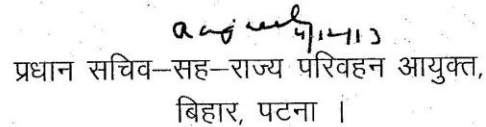 4/12/13
प्रधान सचिव–सह–राज्य परिवहन आयुक्त,
बिहार, पटना ।